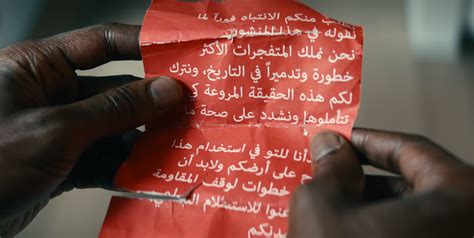 منكم الانتباه فوراً لما
نقوله في هذا المنشور
نحن نملك المتفجرات الأكثر
خطورة وتدميراً في التاريخ، ونترك
لكم هذه الحقيقة المروعة
تتأملوها ونشدد على صحة
للتو في استخدام هذا
على أرضكم ولابد أن
خطوات لوقف المقاومة
للاستسلام